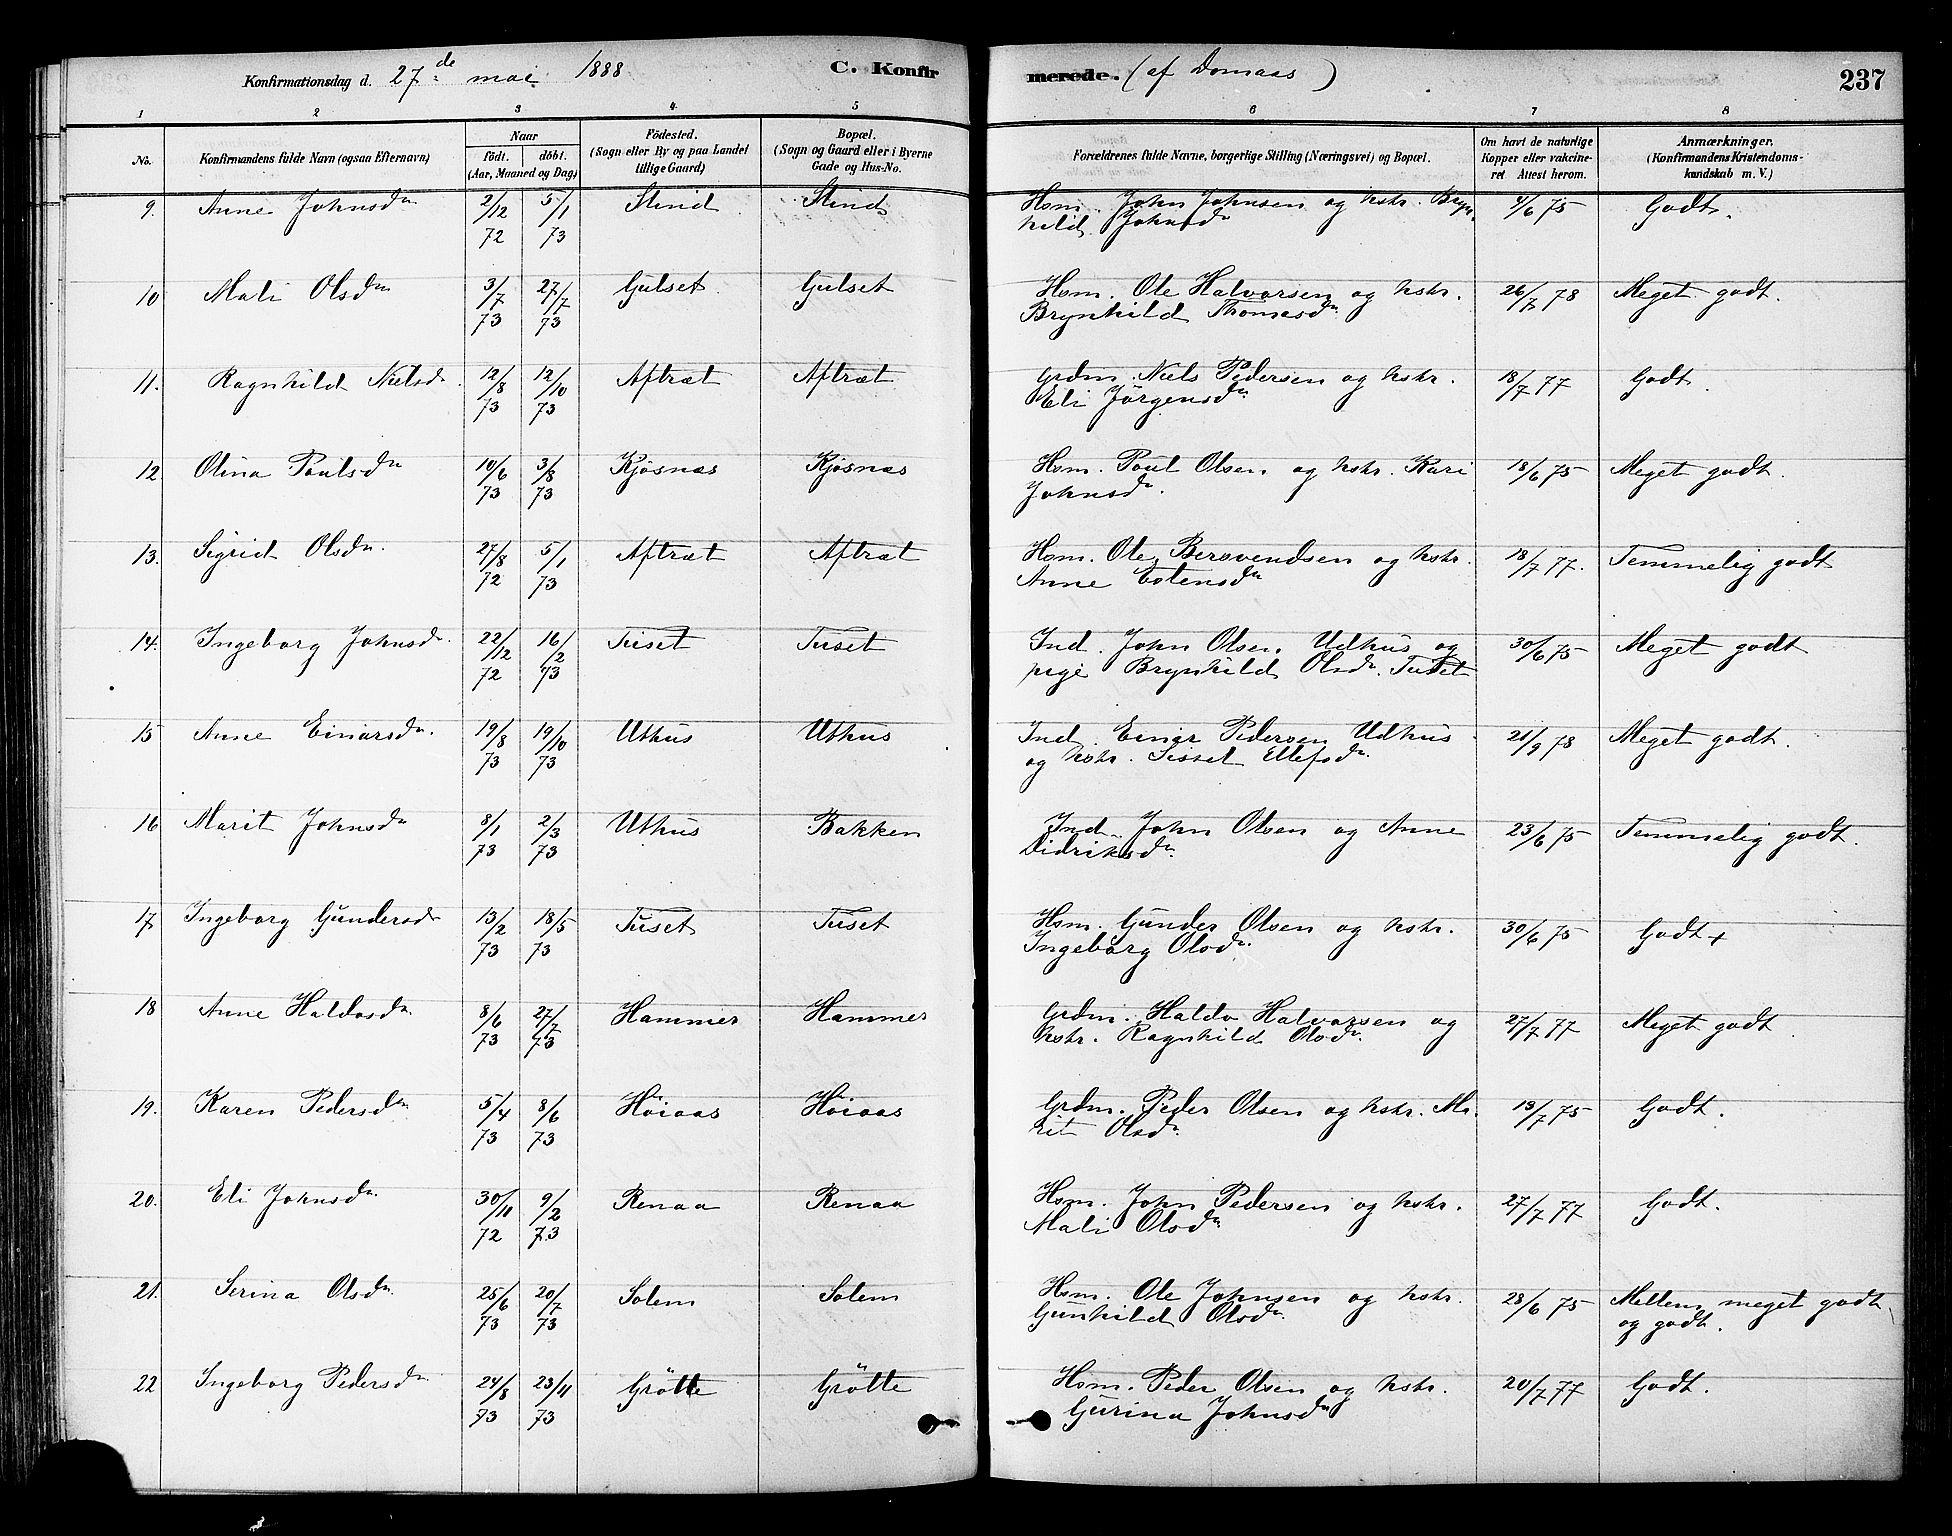 Konfirmationsdag d. 27de mai 1888 C. Konfir merede. (af Domaas) 237
1 2 3 4 5 6 7 8
No. Konfirmandens fulde Navn (ogsaa Efternavn) Naar födt. döbt. (Aar, Maaned og Dag) Födested. (Sogn eller By og paa Landet tillige Gaard) Bopæl. (Sogn og Gaard eller i Byerne Gade og Hus-No. Forældrenes fulde Navne, borgerlige Stilling (Næringsvei) og Bopæl. Om havt de naturlige Kopper eller vakcineret Attest herom. Anmærkninger. (Konfirmandens Kristendomskundskab m. V.)
9. Anne Johnsdr 2/12 72 5/1 73 Slind Slind Hsm. John Johnsen og kstr. Bryn
hild Johnsdr 4/6 75 Godt.
10 Mali Olsdr 3/7 73 27/7 73 Gulset Gulset Hsm. Ole Halvorsen og kstr.
Brynhild Thomasdr 26/7 78 Meget godt.
11. Ragnhild Nielsdr 12/8 73 12/10 73 Aftræt Aftræt Grdm. Niels Pedersen og kstr.
Eli Jörgensdr 18/7 77 Godt.
12 Olina Paulsdr 10/6 73 3/8 73 Kjösnæs Kjösnæs Hsm. Poul Olsen og kstr. Kari
Johnsdr. 18/6 75 Meget godt.
13. Sigrid Olsdr. 27/8 72 5/1 73 Aftræt Aftræt Hsm. Ole Bersvendsen og kstr.
Anne Estensdr 18/7 77. Temmelig godt
14. Ingeborg Johnsdr. 22/12 72 16/2 73 Tuset Tuset Ind. John Olsen Udhus og
pige Brynhild Olsdr. Tuset 30/6 75 Meget godt
15 Anne Einarsdr. 19/8 73 19/10 73 Uthus Uthus Ind. Einar Pedersen Udhus
og kstr. Sisset Ellefsdr. 21/9 78 Meget godt.
16 Marit Johnsdr 8/1 73 2/3 73 Uthus Bakken Ind. John Olsen og Anne
Didriksdr. 23/6 75 Temmelig godt.
17. Ingeborg Gundersdr 13/2 73 18/5 73 Tuset Tuset Hsm. Gunder Olsen og kstr.
Ingeborg Olsdr. 30/6 75 Godt +
18 Anne Haldosdr. 8/6 73 27/7 73 Hammer Hammer Grdm. Haldo Halvorsen og
kstr. Ragnhild Olsdr. 27/7 77 Meget godt.
19. Karen Pedersdr 5/4 73 8/6 73 Höiaas Höiaas Grdm. Peder Olsen og kstr. Ma
rit Olsdr. 19/7 75 Godt.
20. Eli Johnsdr. 30/11 72 9/2 73 Renaa Renaa Hsm. John Pedersen og kstr.
Mali Olsdr 27/7 77 Godt.
21. Serina Olsdr. 25/6 73 20/7 73 Solem Solem Hsm. Ole Johnsen og kstr.
Gunhild Olsdr. 28/6 75 Mellem meget godt
og godt.
22 Ingeborg Pedersdr 24/8 73 23/11 73 Grötte Grötte Hsm. Peder Olsen og kstr.
Gurina Johnsdr 20/7 77 Godt.